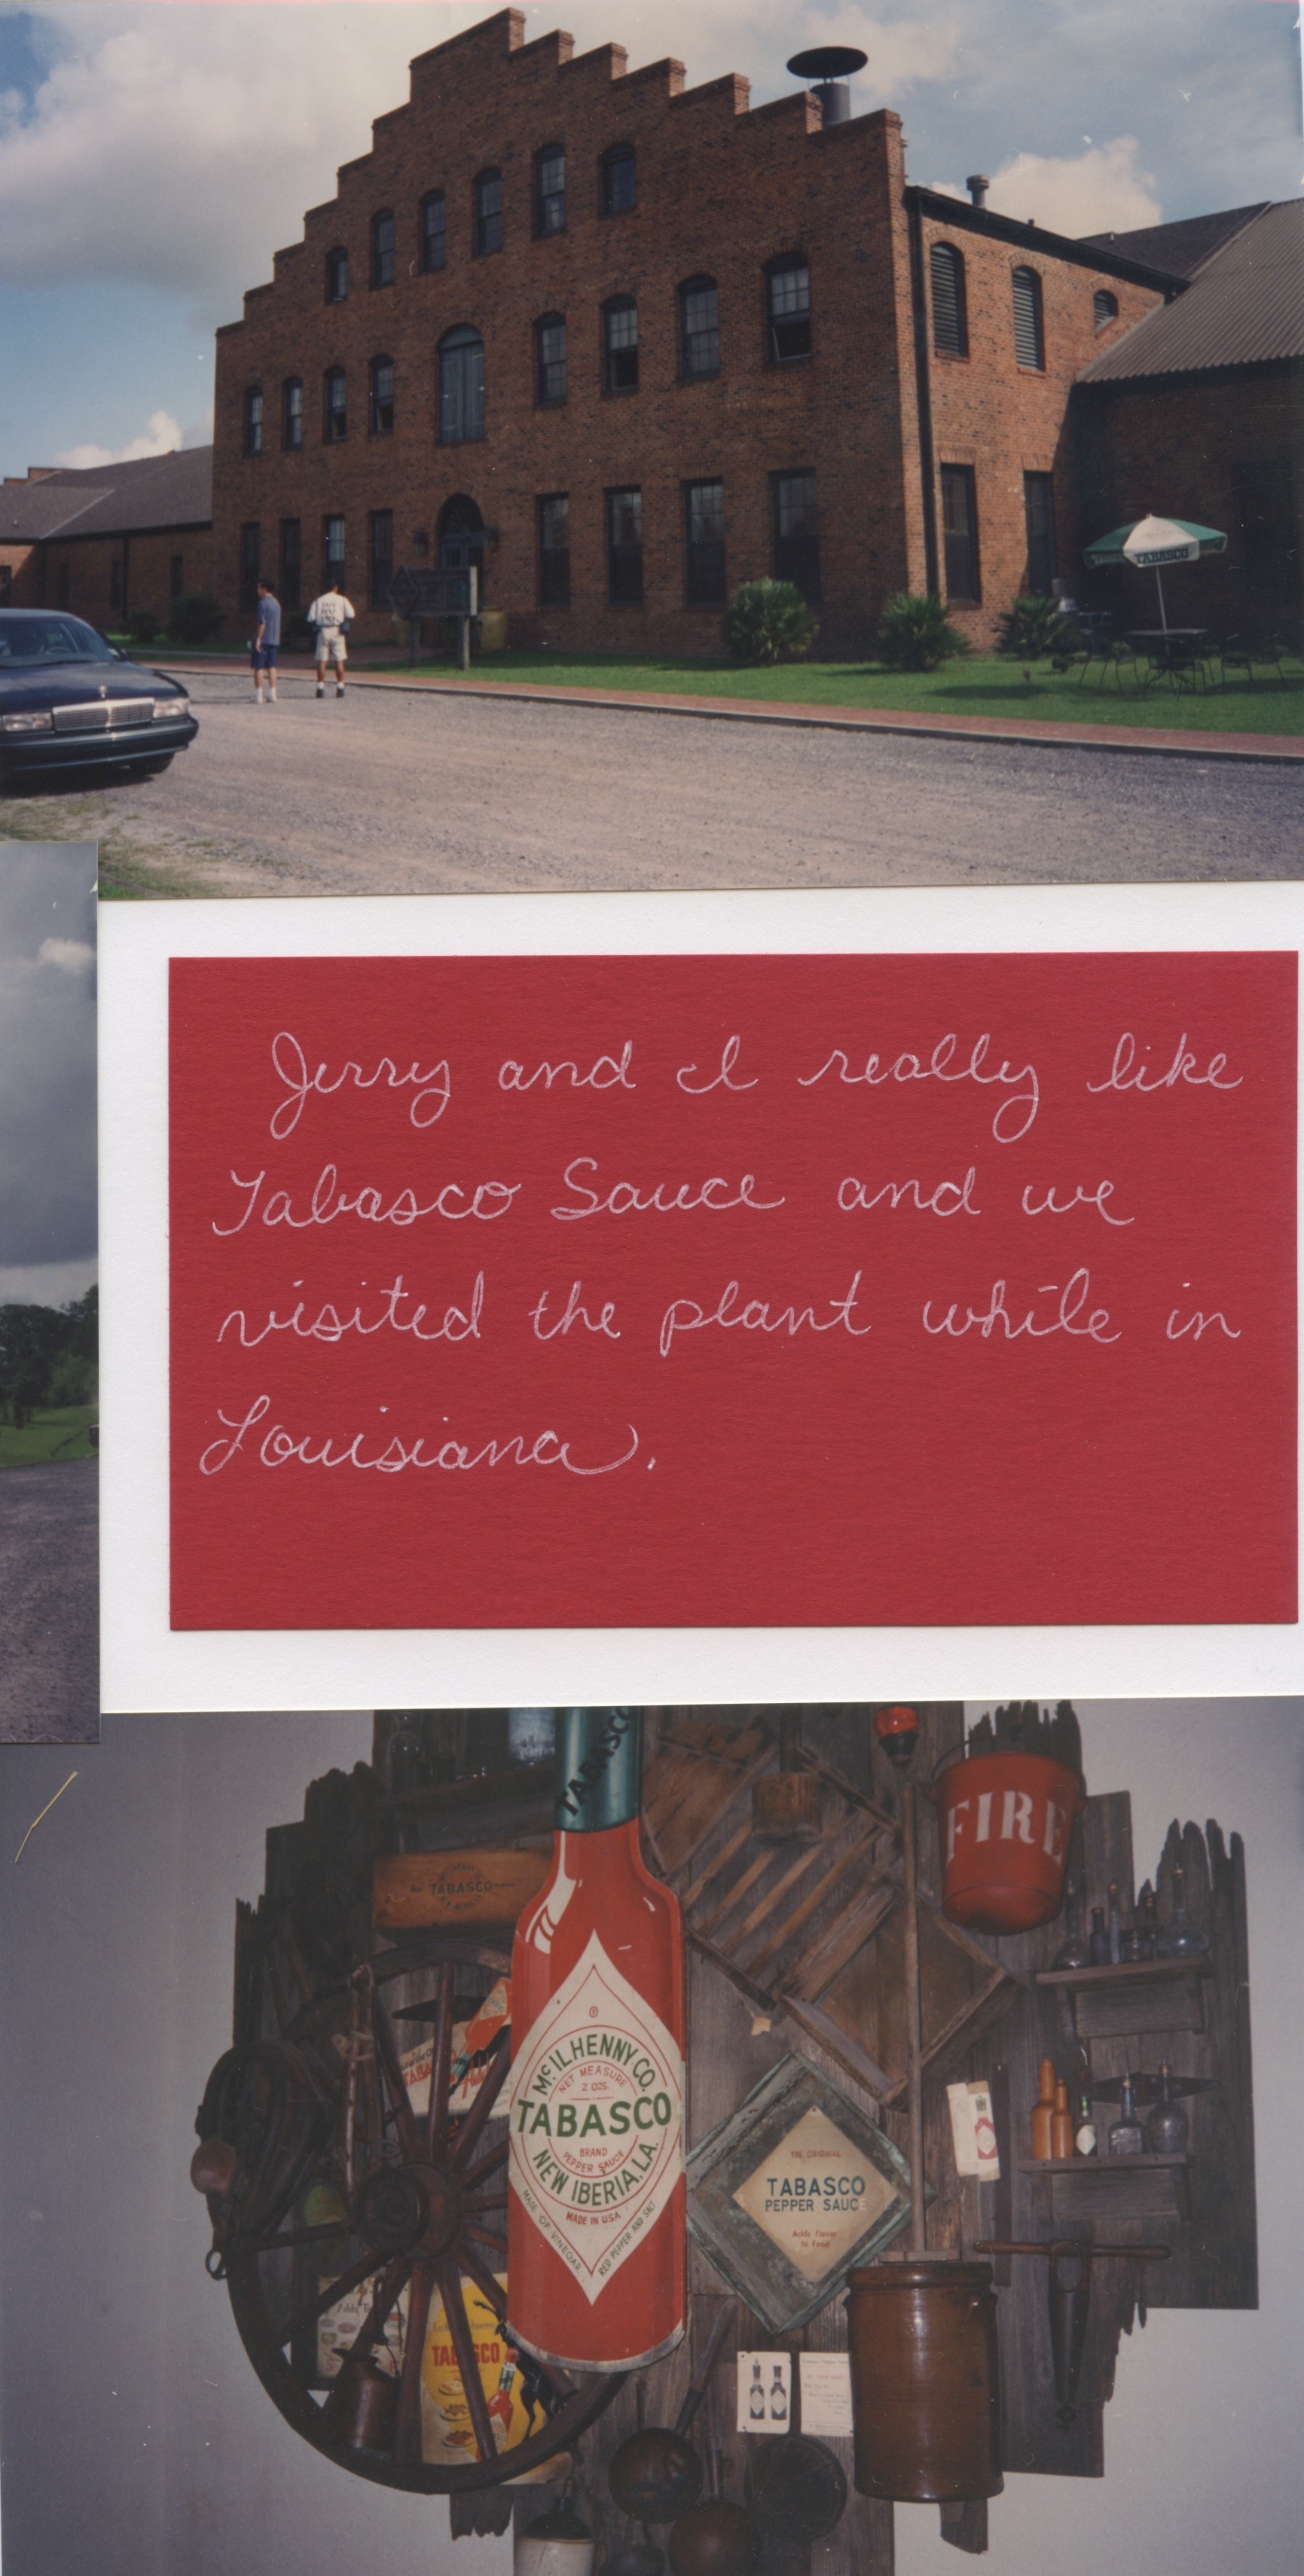 TABASCO
Jerry and I really like
Tabasco Sauce and we
visited the plant while in
Louisiana.
TABASCO
FIRE
TABASCO
®
McILHENNY CO.
NET MEASURE
2 OZS.
TABASCO
BRAND
PEPPER SAUCE
NEW IBERIA, LA.
MADE IN USA
MADE OF VINEGAR
RED PEPPER AND SALT
THE ORIGINAL
TABASCO
PEPPER SAUCE
Adds flavor
to food
TABASCO